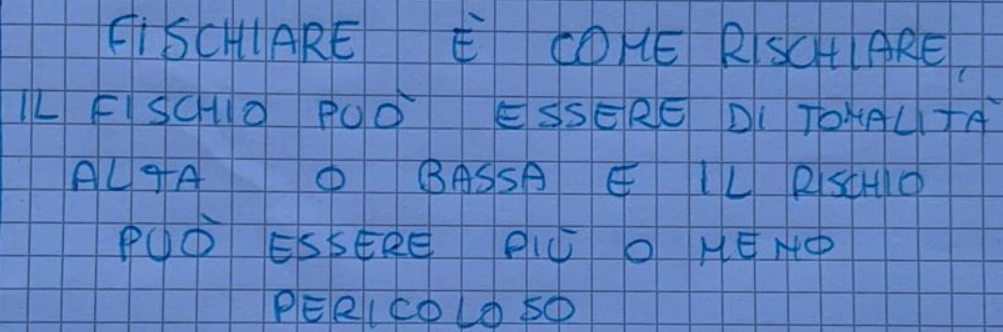 FISCHIARE È COME RISCHIARE,
IL FISCHIO PUÒ ESSERE DI TONALITÀ
ALTA O BASSA E IL RISCHIO
PUÒ ESSERE PIÙ O MENO
PERICOLOSO